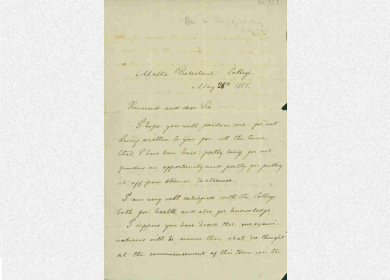 Malta Protestant College.
May 26th 1855.
Reverend and dear Sir
I hope you will pardon me for not
having written to you for all the time
that I have been here, partly being for not
finding an opportunity and partly for putting
it off from steamer to steamer.
I am very well satisfied with the College
both for health and also for knowledge.
I suppose you have heard that our exami-
nations will be sooner than what we thought
at the commencement of this term on the